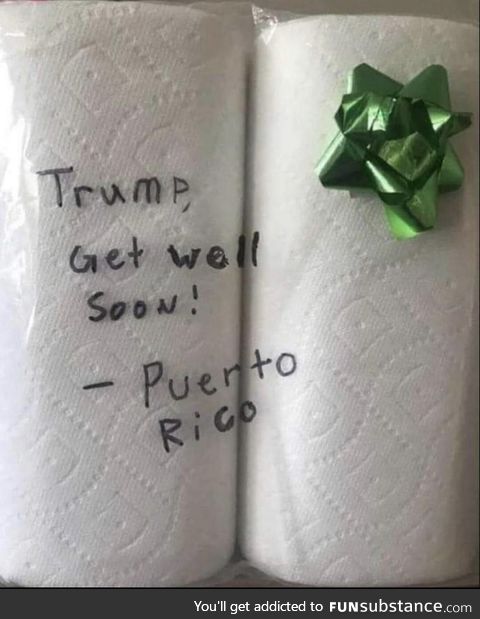 Trump,
Get well
Soon!
- Puerto
Rico
You'll get addicted to FUNsubstance.com